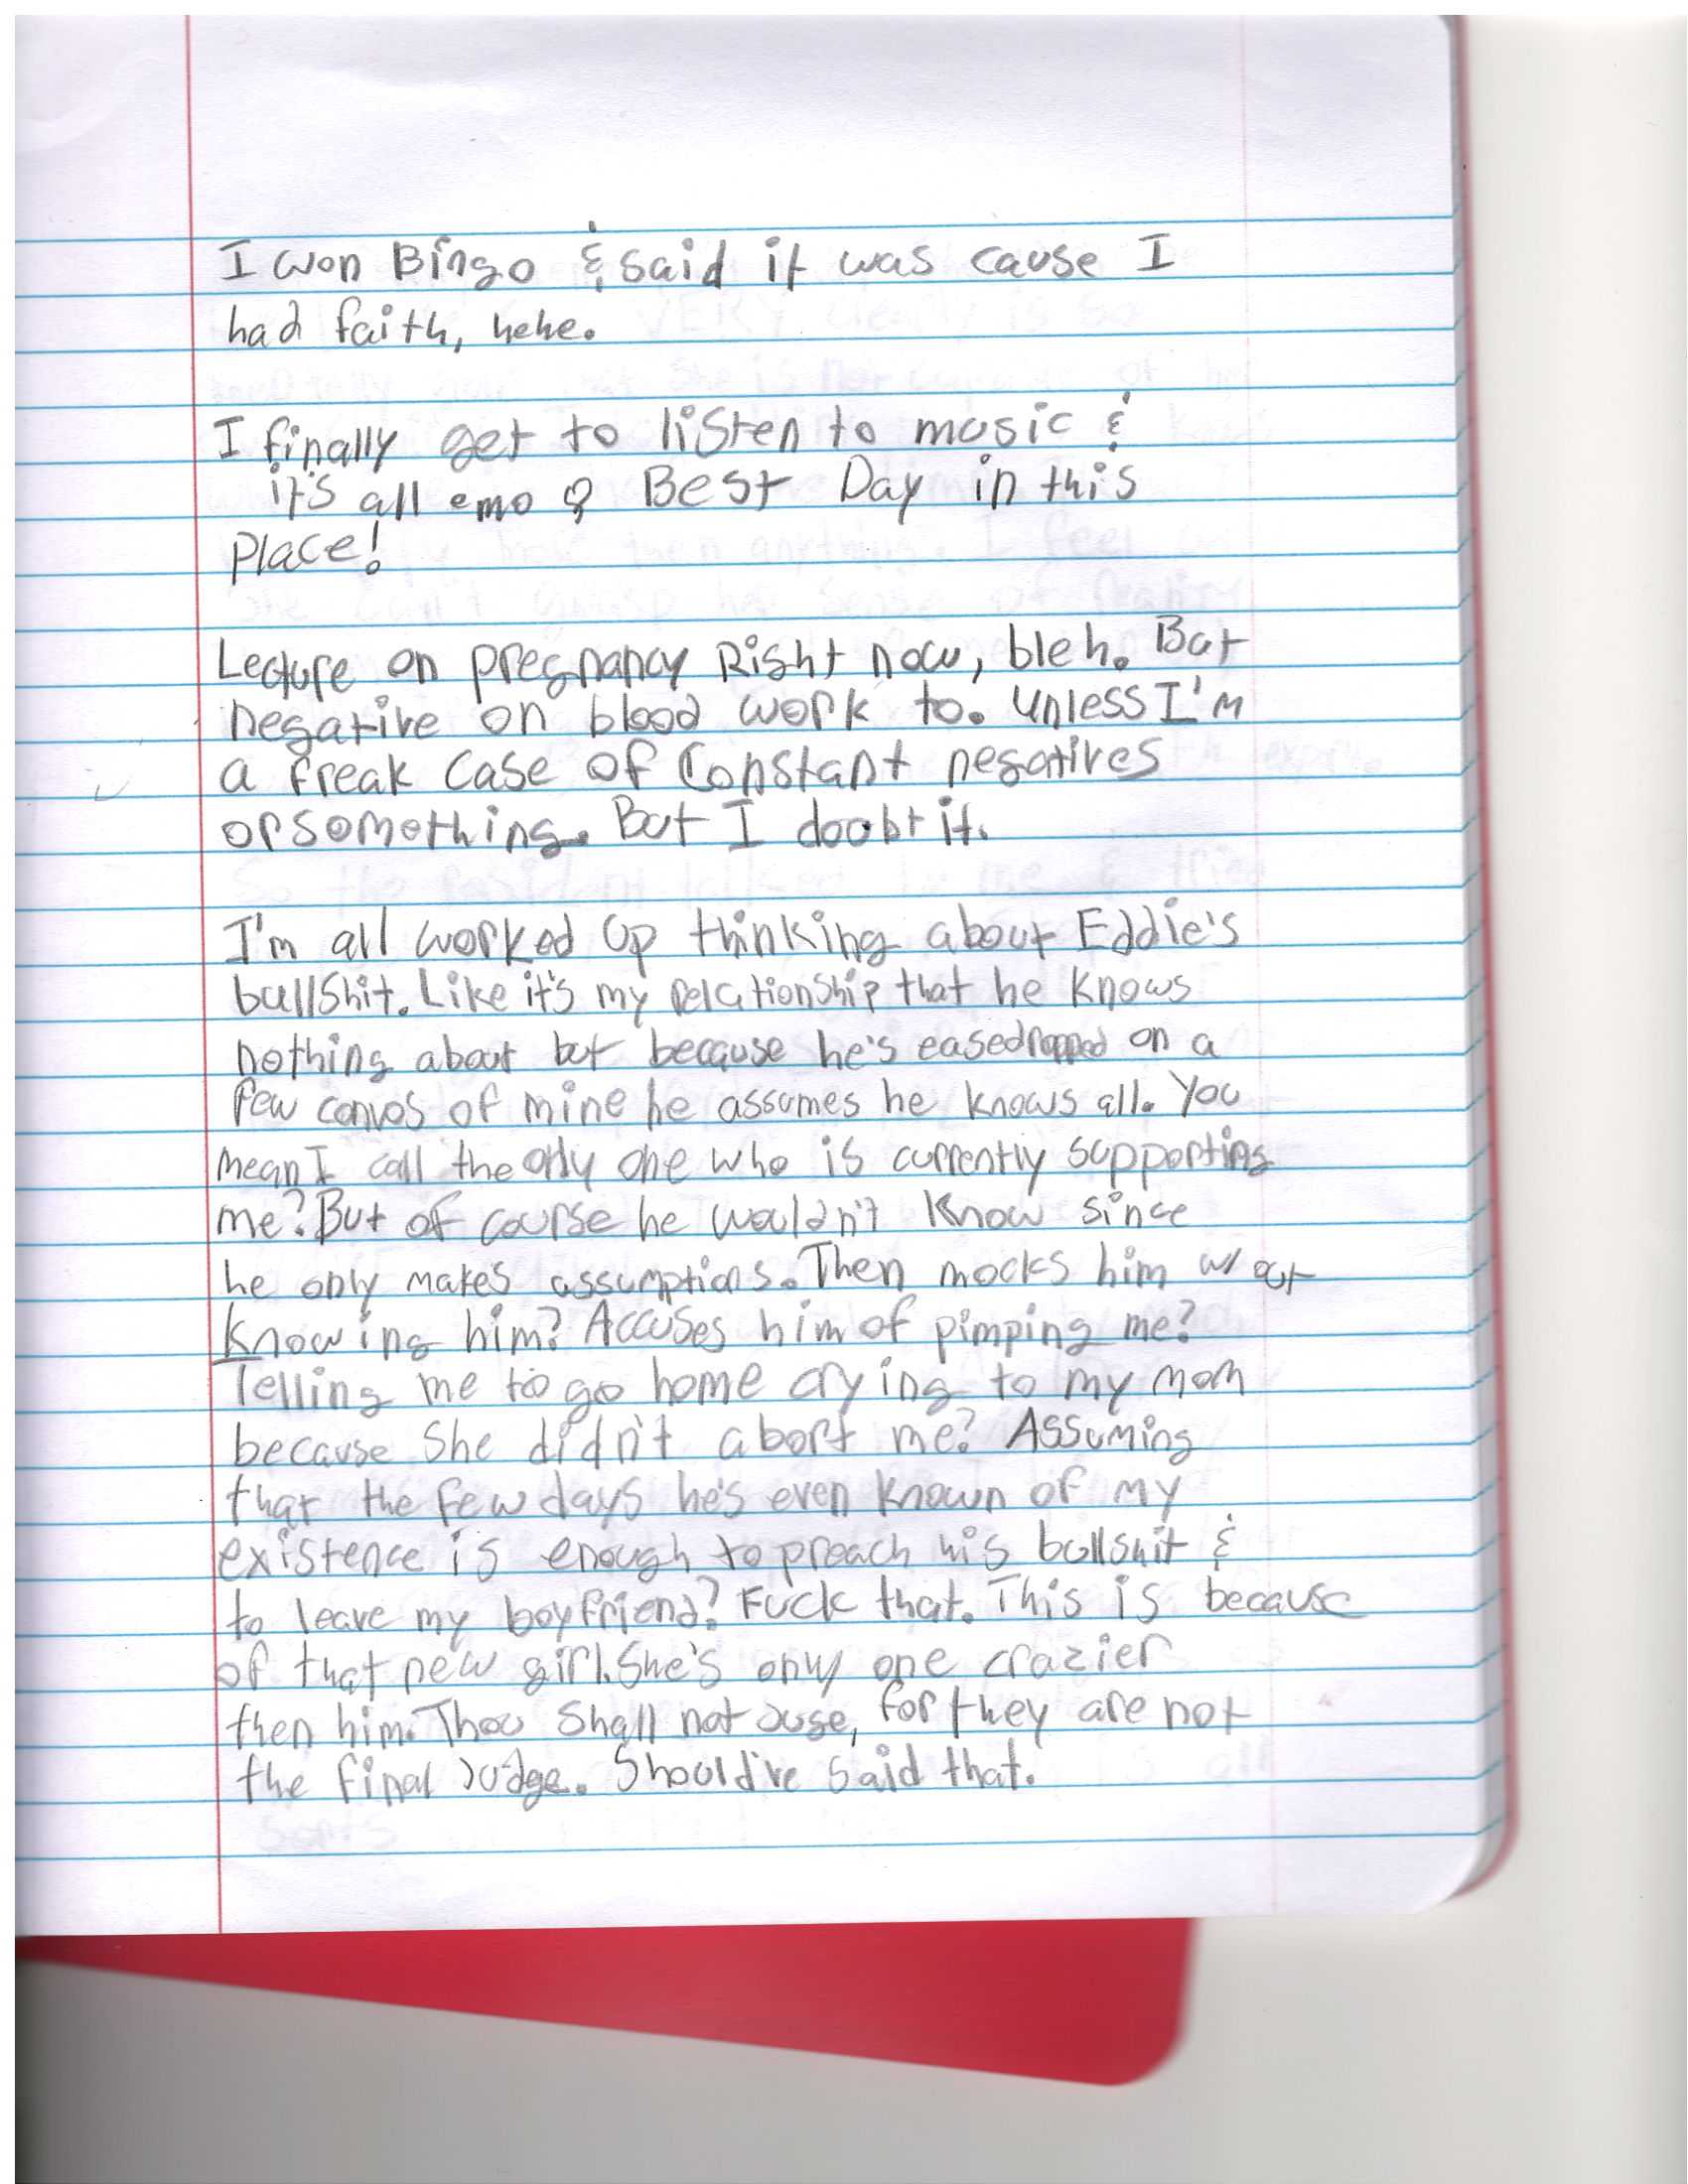 I won Bingo & said it was cause I
had faith, hehe.
I finally get to listen to music &
it's all emo & Best Day in this
Place!
Lecture on pregnancy Right now, bleh. But
negative on blood work to. unless I'm
a freak case of Constant negatives
or somothing. But I doubt it.
I'm all worked up thinking about Eddie's
bullshit. Like it's my relationship that he knows
nothing about but because he's easedropped on a
few convos of mine he assumes he knows all. You
mean I call the only one who is currently supporting
me? But of course he wouldn't know since
he only makes assumptions. Then mocks him w/out
knowing him? Accuses him of pimping me?
Telling me to go home crying to my mom
because she didn't abort me? Assuming
that the few days he's even known of my
existence is enough to preach his bullshit &
to leave my boyfriend? Fuck that. This is because
of that new girl. She's only one crazier
then him. Thou Shall not Juge, for they are not
the final Judge. Should've said that.